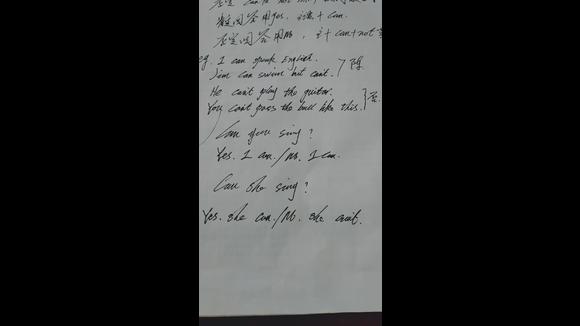 肯定回答用yes, 主语+can.
否定回答用No, 主+can+not
eg. I can speak English.
Jim can swim but can't. 陈
He can't play the guitar.
You can't pass the ball like this. 否.
Can you sing?
Yes. I can./No. I can.
Can she sing?
Yes. she can./No. she can't.